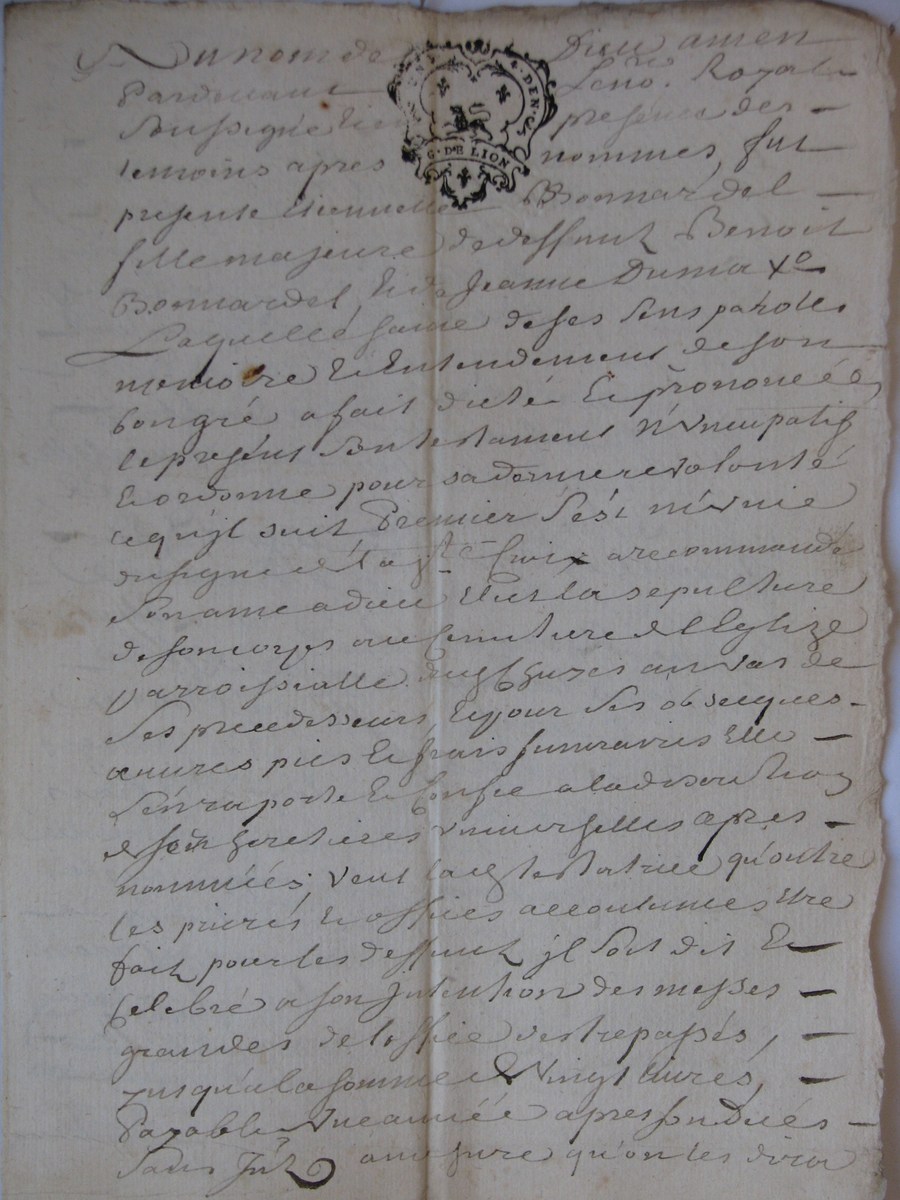 Au nom de Dieu amen
Pardevant Le no.re Royal
soussigné Et en presence des
temoins apres nommes, fut
presente Etiennette Bonnardel
fille majeure de deffunt Benoit
Bonnardel, Et de Jeanne Duma
Laquelle saine de ses sens parolle
memoire Et Entendement de son
bon gré a fait dicté Et prononcée
le present son testament nuncupatif
Et ordonne pour sa derniere volonté
ce qu'jl suit, Premier s'est munie
du signe de la s.te Croix a recommandé
son ame a dieu Elut la sepulture
de son corps au Cimetiere de l'Eglize
parroissialle dud au vas de
ses predecesseurs, Et pour ses obseques
œuvres pies Et frais funeraires Elle
s'en raporte Et confie a la discretion
de ses heretieres universelles apres
nommées, veut lad testatrice qu'outre
les prieres Et offices accoutumes Etre
fait pour les deffunt jl soit dit Et
Celebré a son Intention des messes
grandes de l'office des trepassés,
jusqu'a la somme de vingt livres,
Payable une année apres son decés
sans Jnt a mesure qu'on les dira
G. DE LION